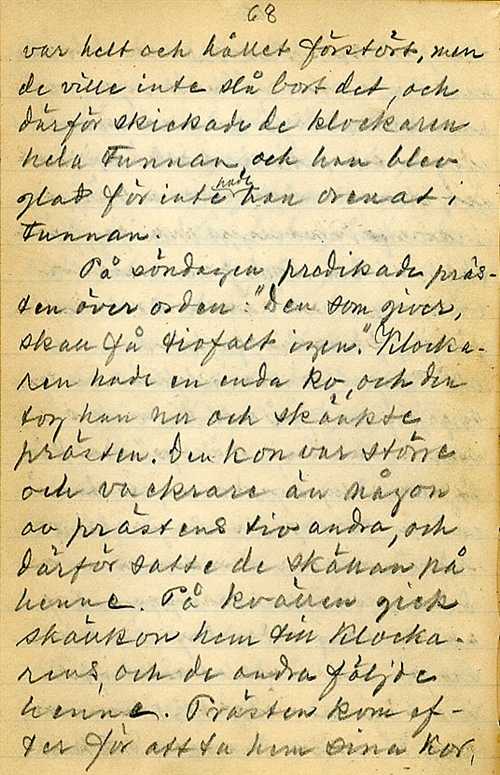 68
var helt och hållet förstört, men
de ville inte slå bort det, och
därför skickade de klockaren
hela tunnan och han blev
glad för inte hade han orenat i
tunnan.
På söndagen predikade präs-
ten över orden: "Den som giver,
skall få tiofalt igen." Klocka-
ren hade en enda ko, och den
tog han nu och skänkte
prästen. Den kon var större
och vackrare än någon
av prästens tio andra, och
därför satte de skällan på
henne. På kvällen gick
skällkon hem till klocka-
rens, och de andra följde
henne. Prästen kom ef-
ter för att ta hem sina kor,